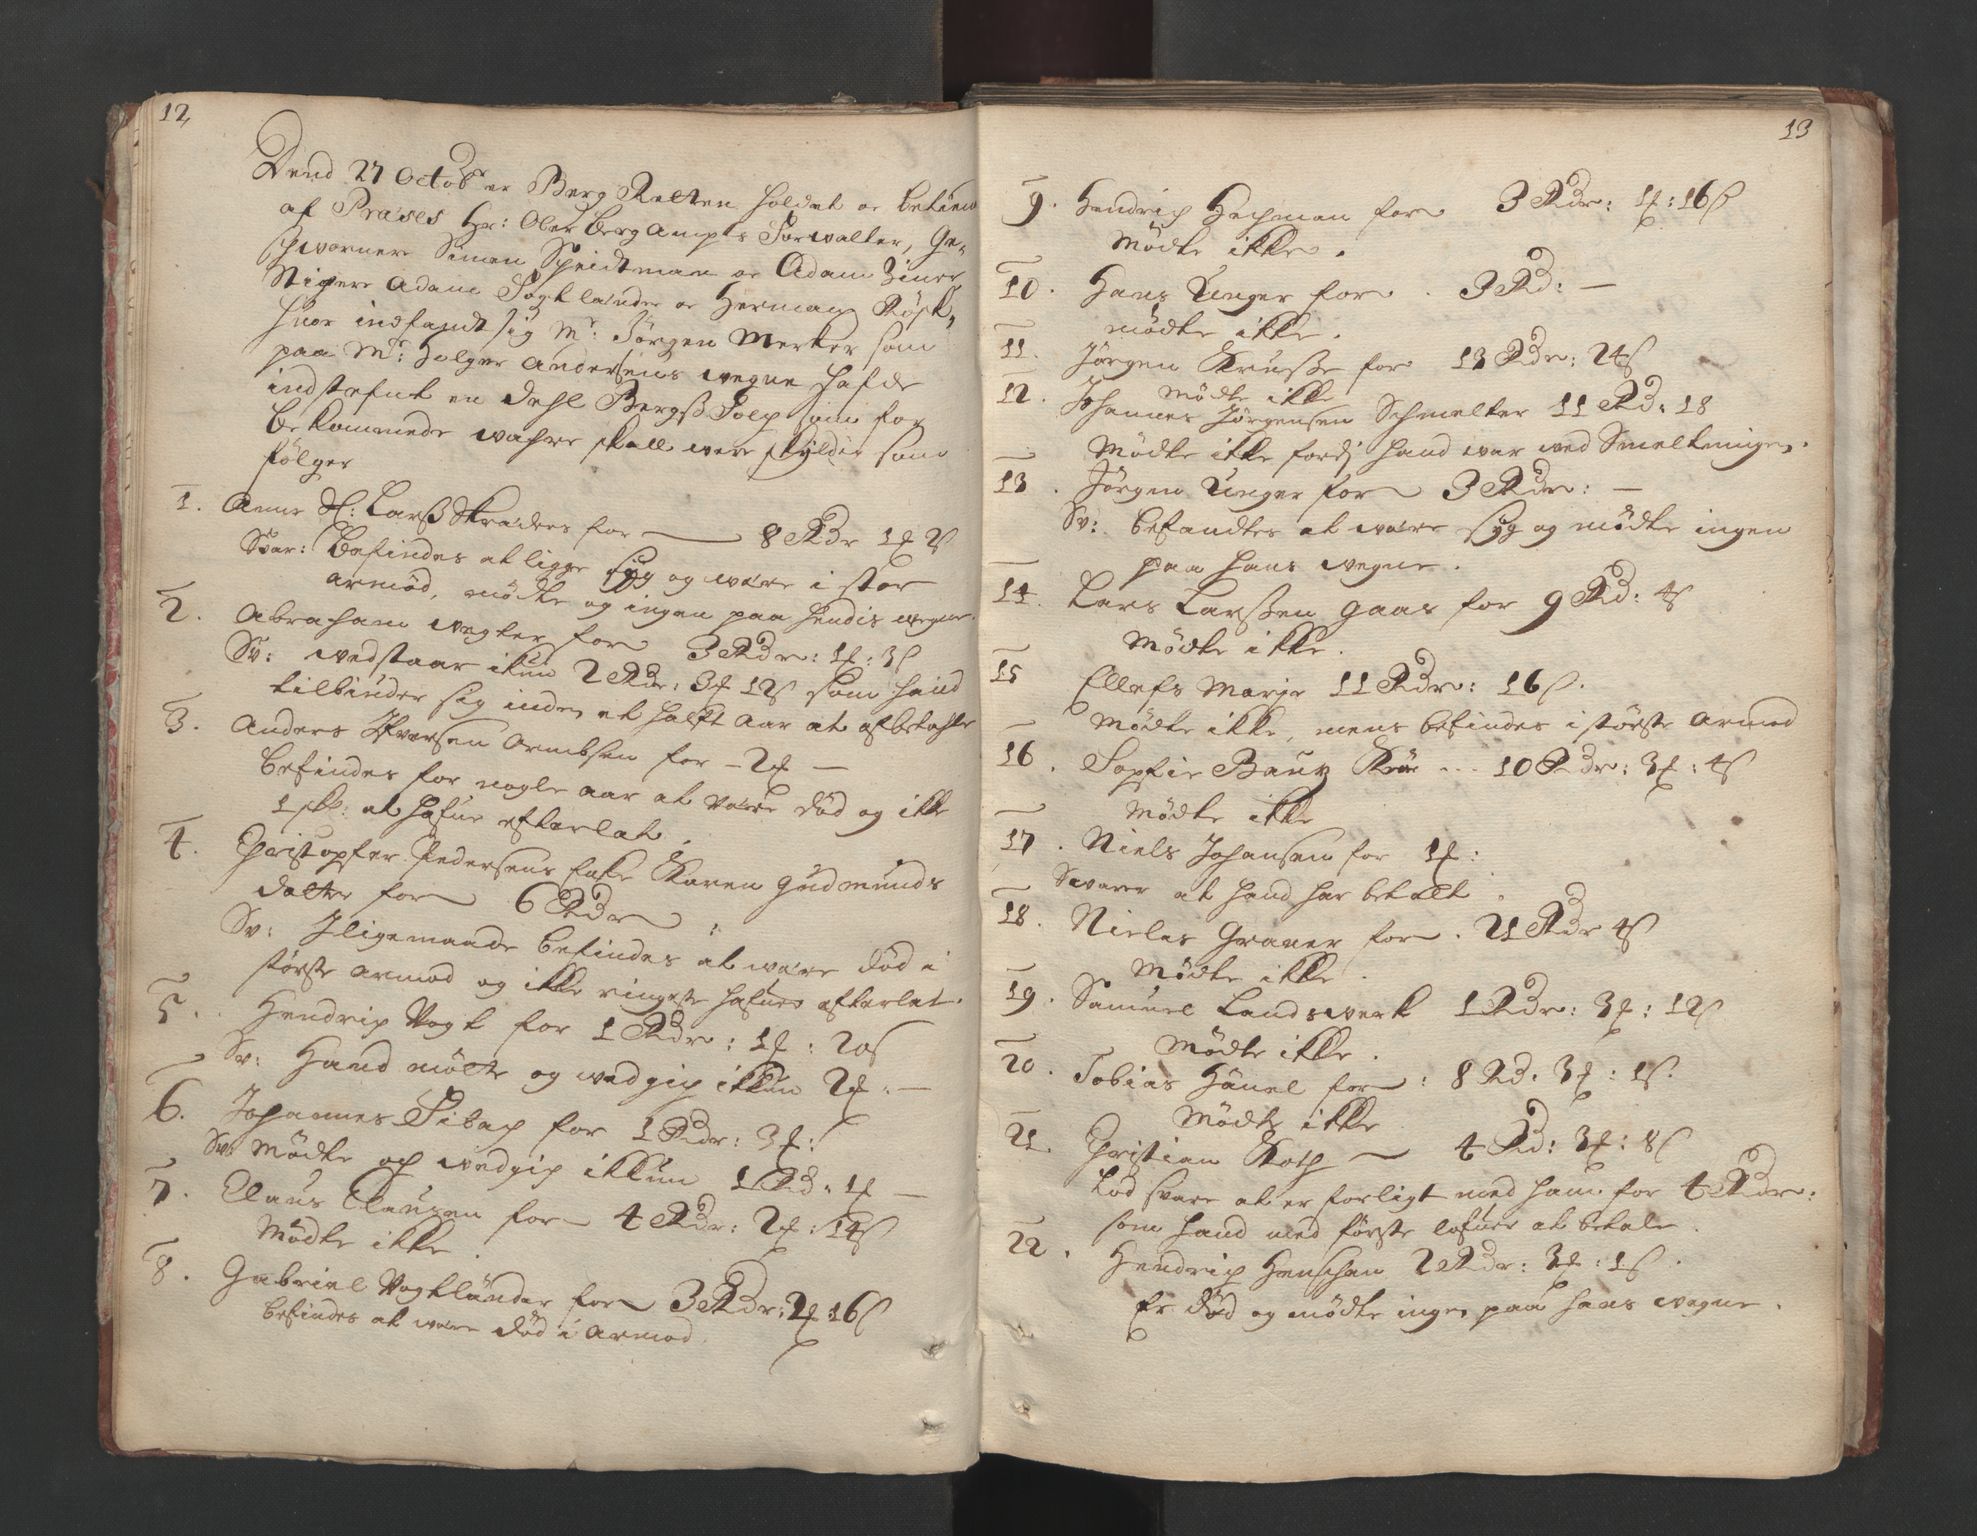 12
Dend 27 Octobr er Berg Retten holdet oc betient
af Præses Hr: Ober Berg Ampts Forwalter, Ge-
schworner Simen Speidtman oc Adam Ziner
Stiger Adam Fogtlænder oc Herman Röpk,
hvor indfandt sig Mr. Jörgen Merker som
paa Mr: Holger Andersens wegne hafde
indstefnt en dehl Bergs Folch som for
bekommede wahre skall were skyldig som
fölger
1. Anne Sl: Larss Skræders for — 8 Rdr 1 ort 2 s
Svar: befindes at ligge syg og være i stor
armod, mödte og ingen paa hendis wegne.
2. Abraham Wegter for 3 Rdr: 1 ort: 3 s
Sv: wedstaar ikun 2 Rdr: 3 ort 12 s som hand
tilbinder sig inden et halft aar at afbetahle
3. Anders Ifversen Armbsen for - 2 ort —
befindes for nogle aar at være död og ikke
1 sk: at hafue efterlat.
4. Christopher Pedersens Enke Karen Gudmunds
datter for 6 Rdr
Sv: Iligemaade befindes at være död i
störste armod og ikke ringeste hafuer efterlat.
5. Hendrich Vogt for 1 Rdr: 1 ort: 20 s
Sv: Hand mötte og wedgich ikkun 2 ort: —
6. Johannes Sibach for 1 Rdr: 3 ort:
Sv: Mödte og wedgich ikkun 1 Rd: 1 ort —
7. Claus Clausen for 4 Rdr: 2 ort: 14 s
Mödte ikke.
8. Gabriel Vogtländer for 3 Rdr: 2 ort: 16 s
befindes at være död i armod.
13
9. Hendrich Hechman for 3 Rdr: 1 ort: 16 s
Mödte ikke.
10. Hans Unger for. 3 Rd: —
mödte ikke.
11. Jörgen Krusse for 13 Rdr: 24 s
Mödte ikke
12. Johannes Jörgensen Schmelter 11 Rd: 18
Mödte ikke fordj hand war wed Smeltningen.
13. Jörgen Unger for 3 Rdr: —
Sv: befandtes at være syg og mödte ingen
paa hans wegne.
14. Lars Larssen Gaas for 9 Rd: 4 s
Mödte ikke.
15 Ellefs Marje 11 Rdr: 16 s.
Mödte ikke, mens befindes i störste armod
16. Sophie Bauz Kröe ... 10 Rdr: 3 ort: 4 s
Mödte ikke
17. Niels Johansen for 1 ort:
Swarer at hand har betalt.
18. Nielas Graner for. 21 Rdr 4 s
Mödte ikke.
19. Samuel Landswerk 1 Rdr: 3 ort: 12 s
Mödte ikke.
20. Tobias Hänel for: 8 Rd. 3 ort: 1 s.
Mödte ikke
21. Christian Koth — 4 Rd: 3 ort: 8 s
Lod svare at er forligt med ham for 4 Rdr:
som hand med förste lofuer at betale.
22. Hendrich Henschen 2 Rdr: 3 ort: 1 s.
Er död og mödte ingen paa hans wegne.